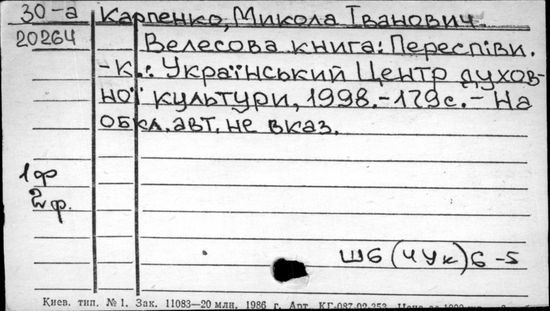 30-а Карпенко, Микола Іванович.
20264 Велесова книга: Переспіви.
-К.: Український Центр духов-
ної культури, 1998.-179с.- На
обкл. авт. не вказ.
1ф
2ф.
Ш6(4Ук)6-5
Киев. тип. № 1. Зак. 11083—20 млн. 1986 г. Арт. КГ-087-02-353